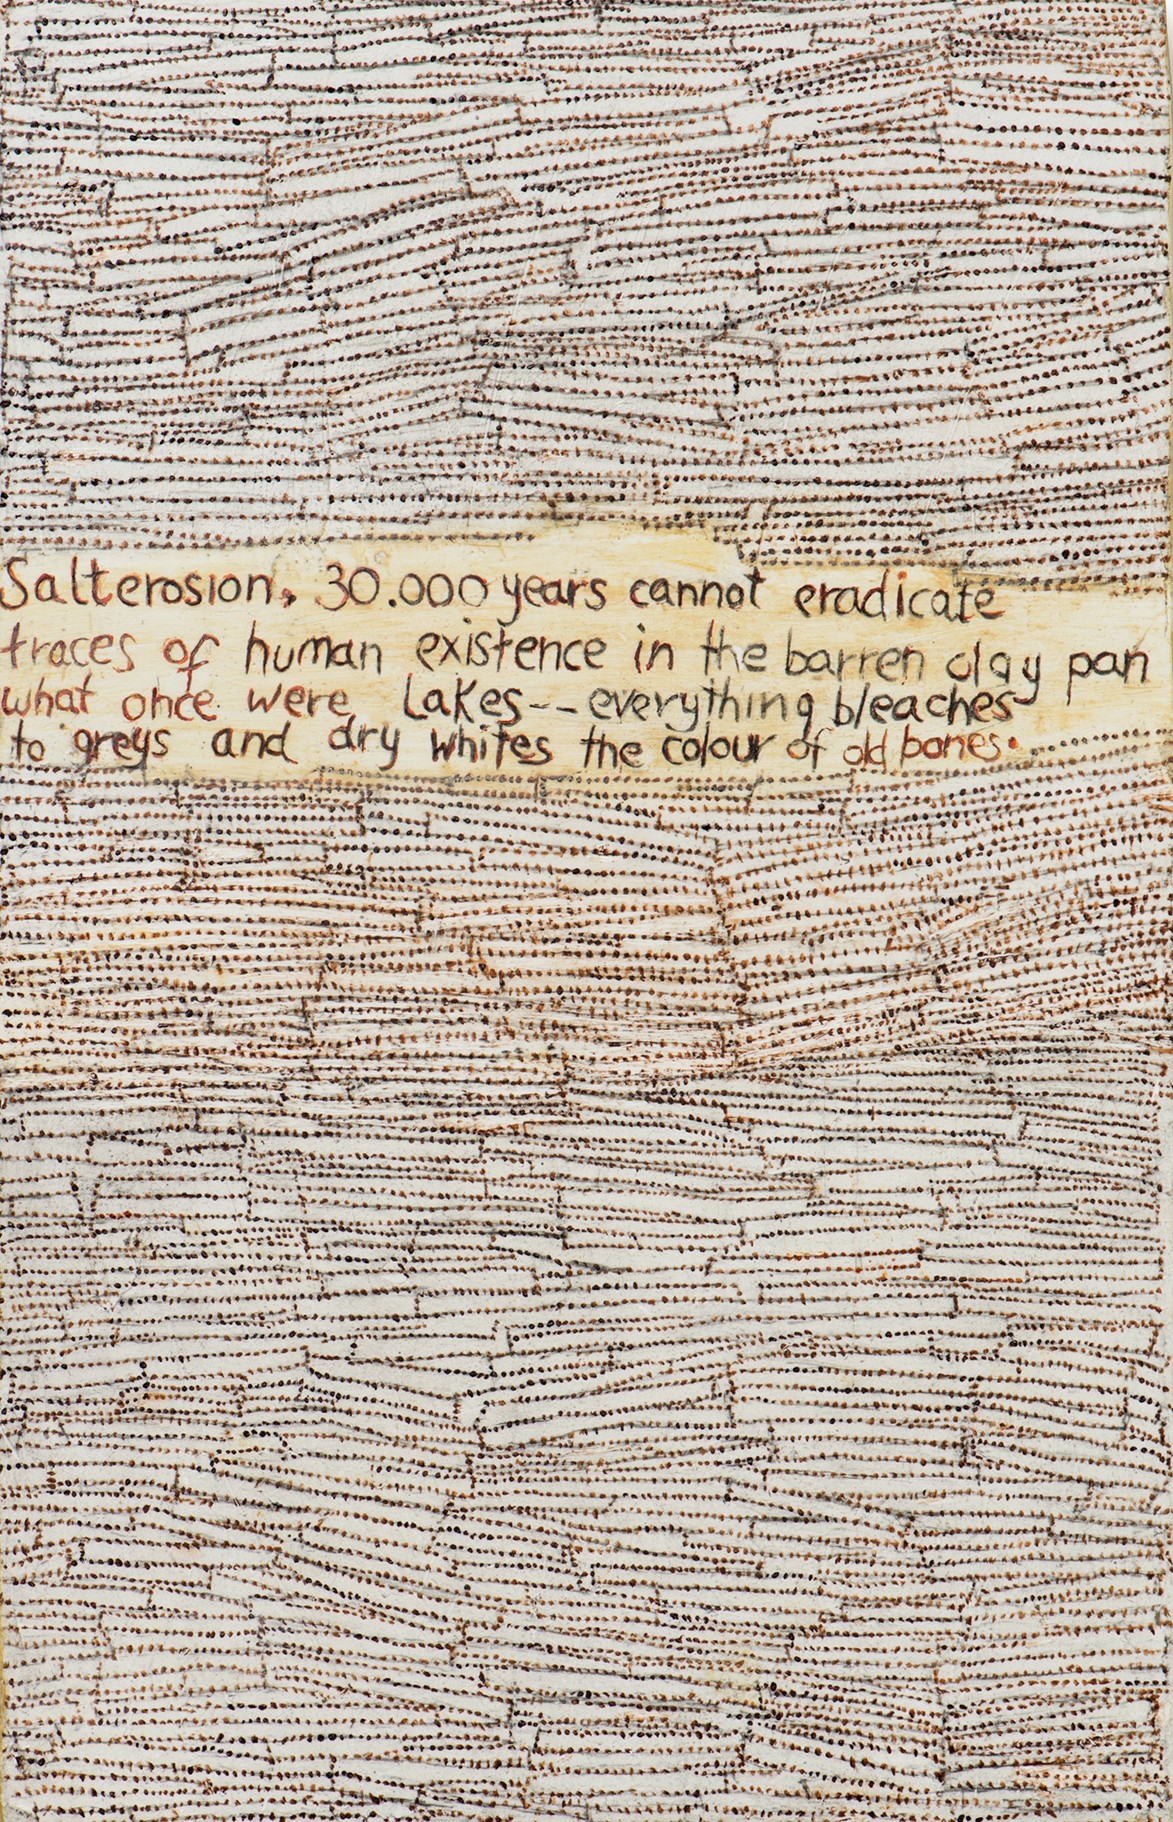 Salterosion, 30.000 years cannot eradicate
traces of human existence in the barren clay pan
what once were Lakes--everything bleaches
to greys and dry whites the colour of old bones.